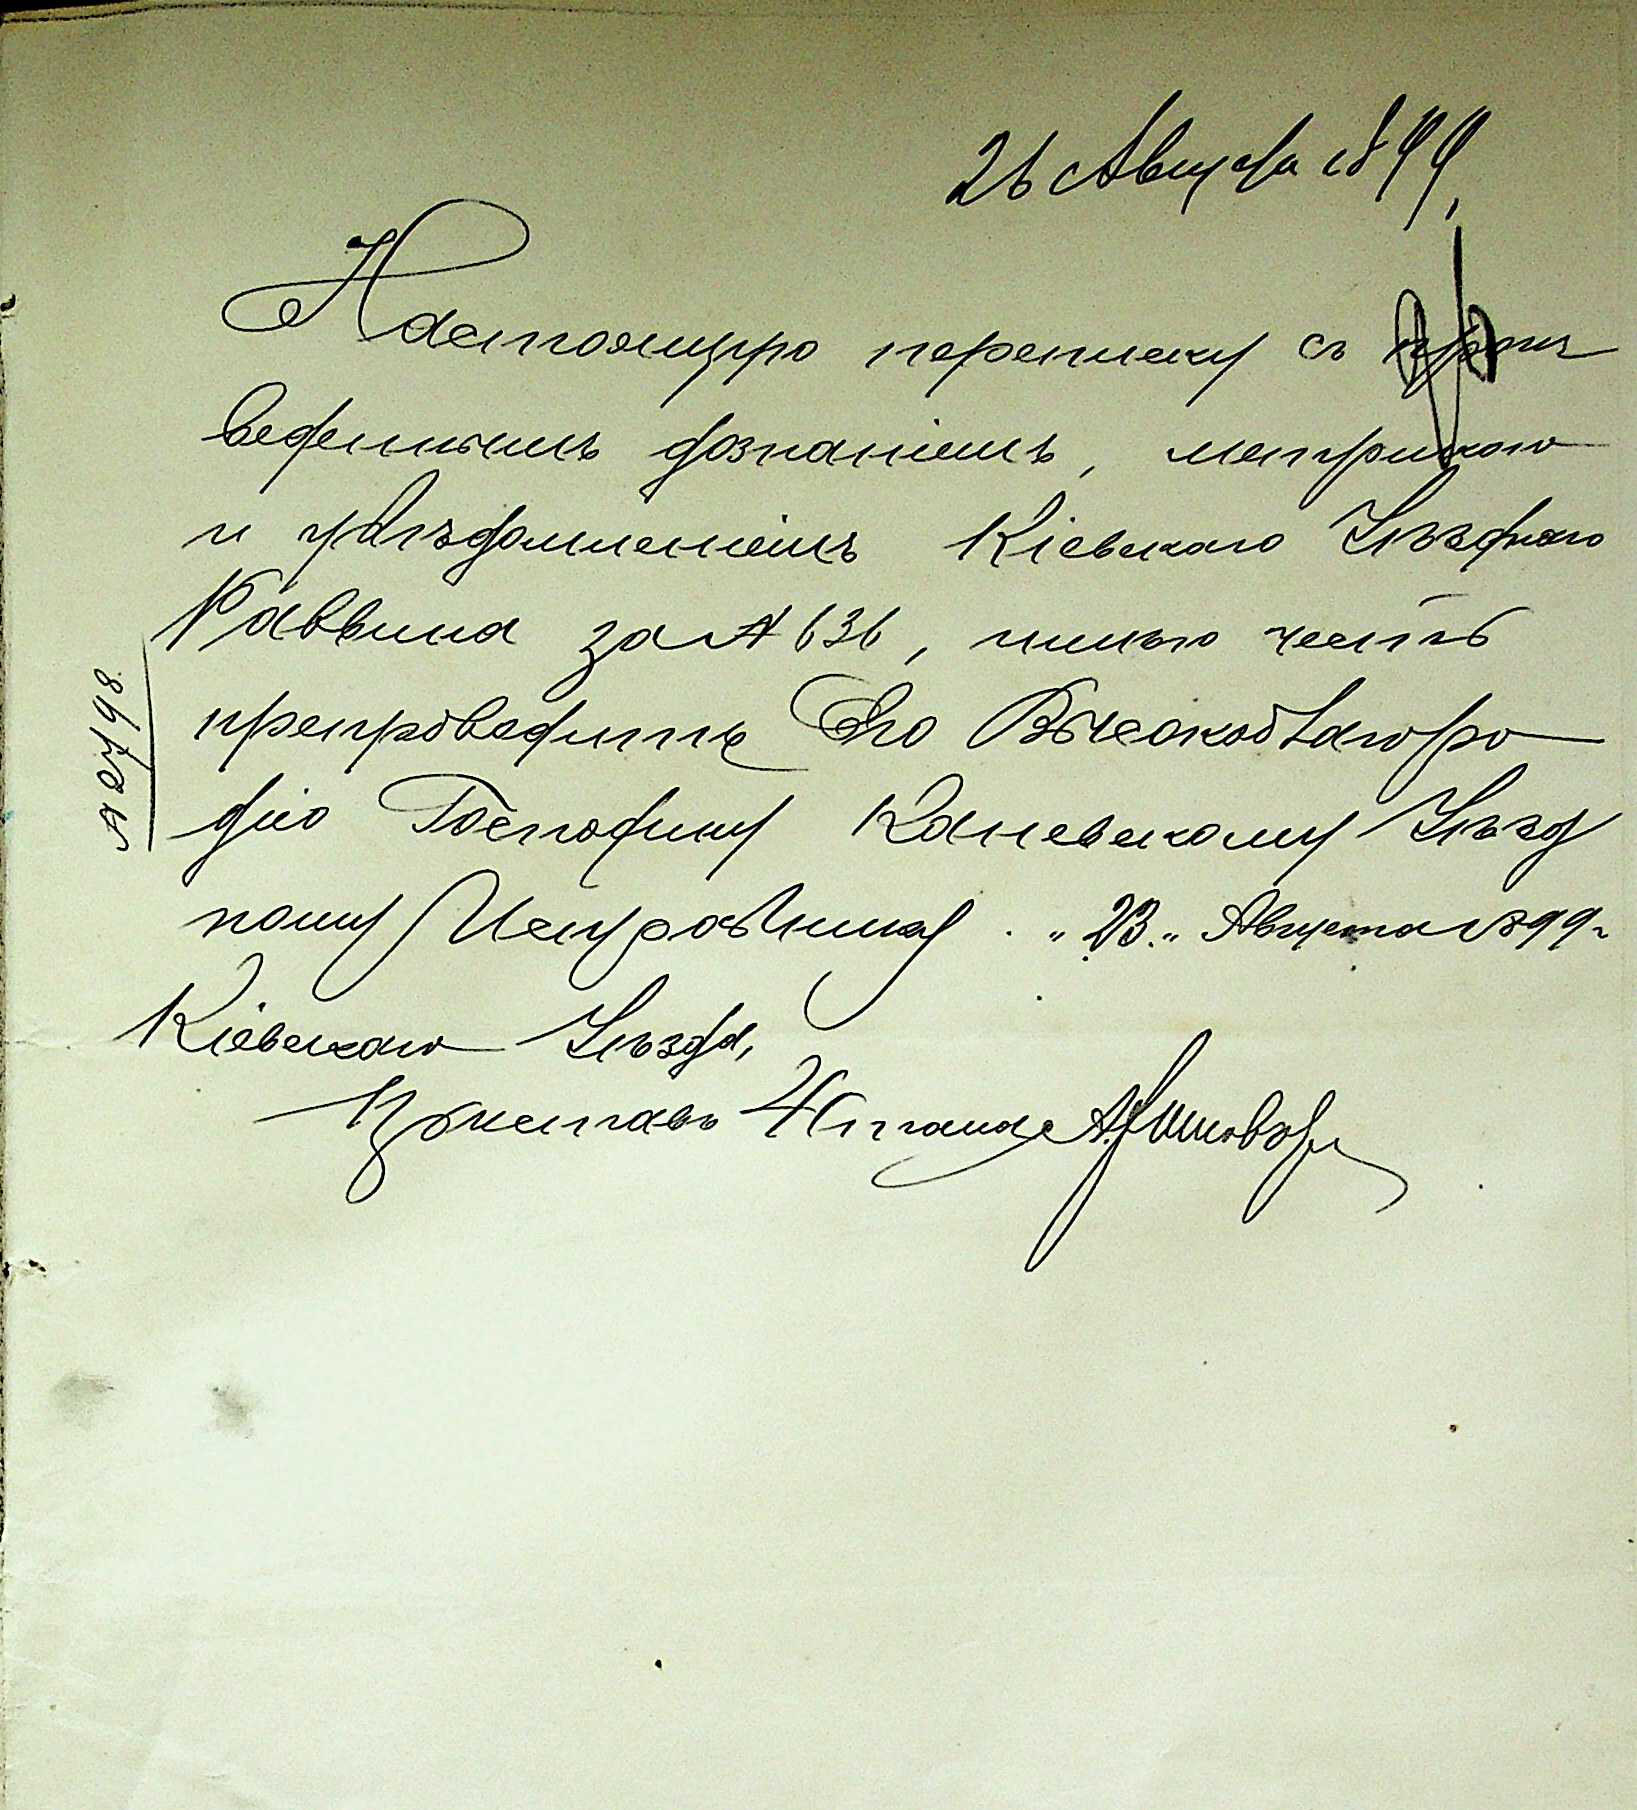 26 Августа 1899
Настоящую переписку съ произ
веденнымъ дознаніемъ, метрикою
и увѣдомленіемъ Кіевскаго Уѣзднаго
Раввина за № 636, имѣю честь
препроводить Его Высокоблагоро
дію Господину Каневскому Уѣзд
ному Исправнику. „23„ Августа 1899 г
№ 2798.
Кіевскаго Уѣзда,
Приставъ 4 стана